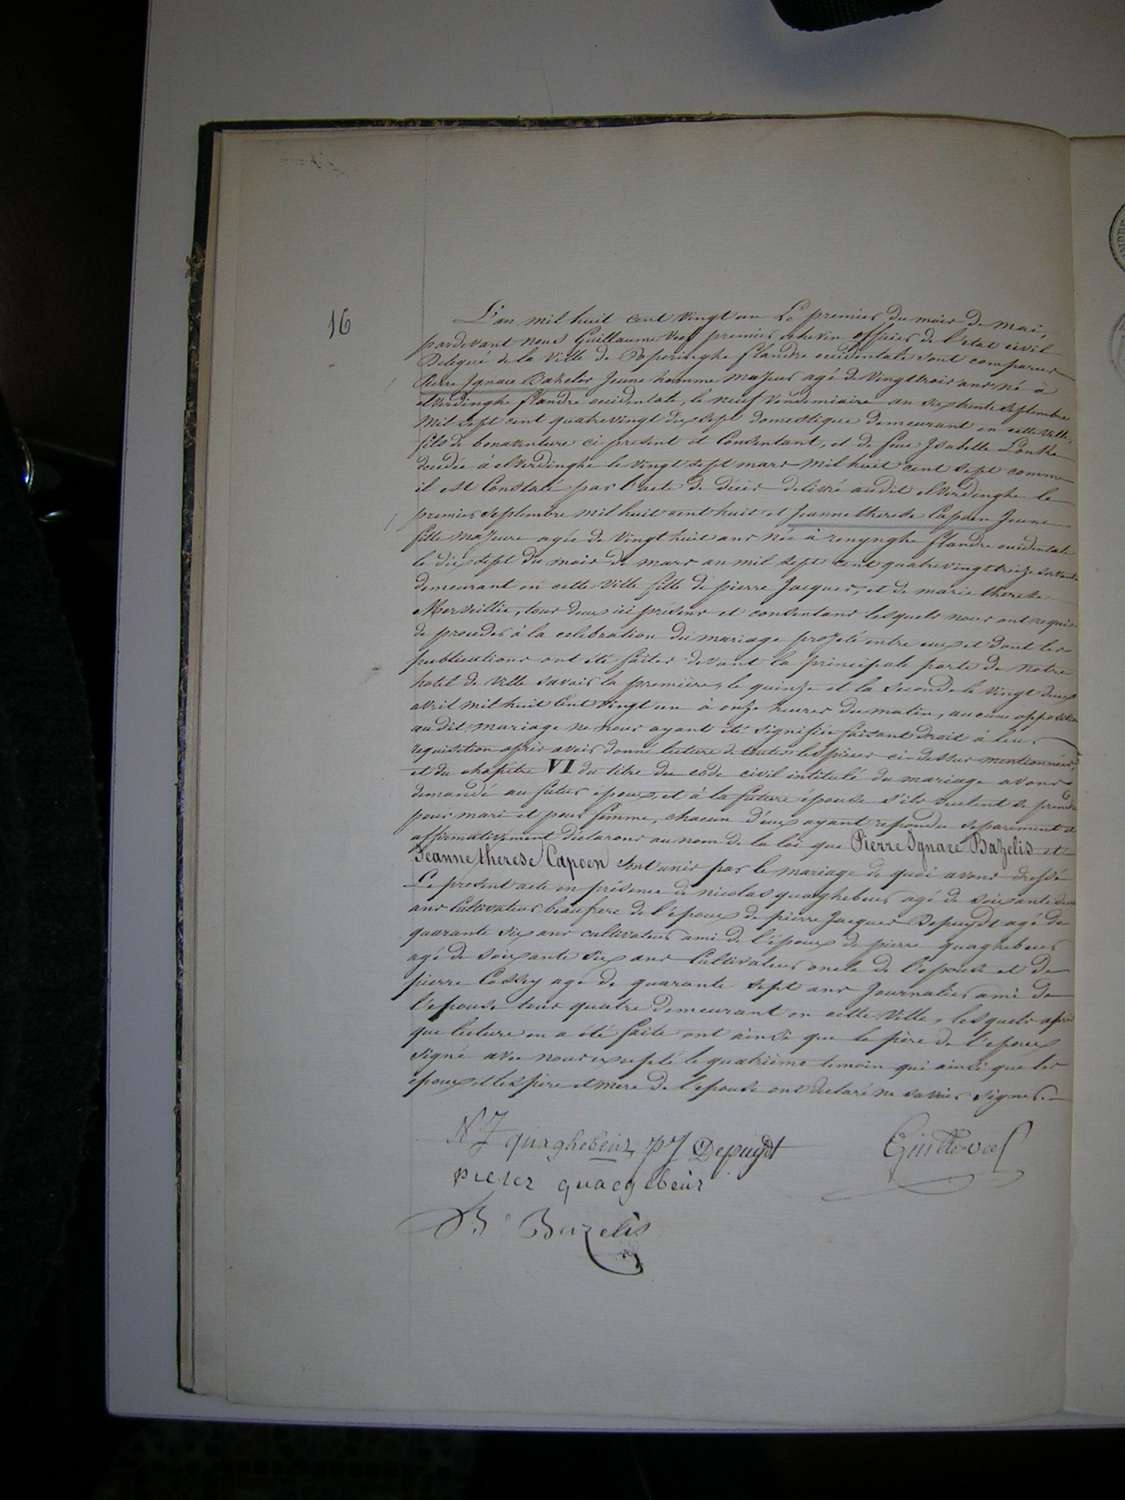 16
L'an mil huit cent vingt un Le premier du mois de mai,
pardevant nous Guillaume Vael premier echevin officier de l'etat civil
Delegué de la ville de Poperinghe flandre occidentale sont comparus
Pierre Ignace Bazelis Jeune homme Majeur agé de vingt trois ans né à
elverdinghe flandre occidentale, le neuf vendemiaire an six trente septembre
Mil sept cent quatrevingt dix sept domestique demeurant en cette ville,
fils de bonaventure ci present et Consentant, et de feue Isabelle
decédée à elverdinghe le vingt sept mars Mil huit cent sept comme
il est Constaté par l'acte de décès delivré audit elverdinghe le
premier septembre Mil huit cent huit et Jeanne therese Capoen Jeune
fille Majeure agée de vingt huit ans née à renynghe flandre occidentale
le dix sept du mois de mars an mil sept cent quatre vingt treize
demeurant en cette ville fille de pierre Jacques, et de marie therese
Merseillie, tous deux ici presens et consentans lesquels nous ont requis
de proceder à la celebration du mariage projeté entre eux et dont les
publications ont été faites devant la principale porte de notre
hotel de ville savoir la première, le quinze et la seconde le vingt deux
avril mil huit cent vingt un à onze heures du matin, aucune opposition
audit mariage ne nous ayant été signifiée faisant droit à leur
requisition après avoir donné lecture de toutes les pièces ci-dessus mentionnées,
et du chapitre VI du titre du code civil intitulé du mariage avons
demandé au futur epoux, et à la future épouse s'ils veulent se prendre
pour mari et pour femme, chacun d'eux ayant repondu separement et
affirmativement declarons au nom de la loi que Pierre Ignace Bazelis et
Jeanne therese Capoen sont unis par le mariage de quoi avons dressé
Le present acte en présence de nicolas quaghebeur agé de soixante deux
ans Cultivateur beaufrere de l'époux de pierre Jacques Depuydt agé de
quarante six ans cultivateur ami de l'époux de pierre quaghebeur
agé de soixante six ans Cultivateur oncle de l'epouse et de
pierre Cossey agé de quarante sept ans Journalier ami de
l'epouse tous quatre demeurant en cette ville, lesquels après
que lecture en a été faite ont ainsi que le père de l'epoux
signé avec nous excepté le quatrième temoin qui ainsi que les
epoux et les père et mere de l'epouse ont declaré ne savoir signer.
N J quaghebeur pJ Depuydt Guille Vael
pieter quaeghebeur
B Bazelis